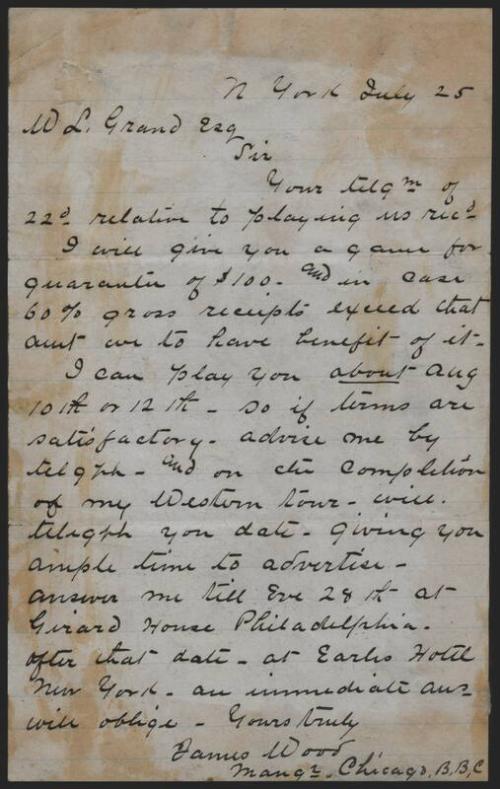 N York July 25
W L. Grand Esq
Sir
Your telgm of
22d relative to playing us recd
I will give you a game for
guarantee of $100- and in case
60% gross receipts exceed that
amt we to have benefit of it-
I can play you about Aug
10th or 12th - so if terms are
satisfactory - advise me by
telgph - and on the completion
of my Western tour - will
telegph you date - giving you
ample time to advertise -
answer me till Eve 28th at
Girard House Philadelphia -
after that date - at Earles Hotel
New York - an immediate ans
will oblige - Yours truly
James Wood
Mangr. Chicago, B, B, C